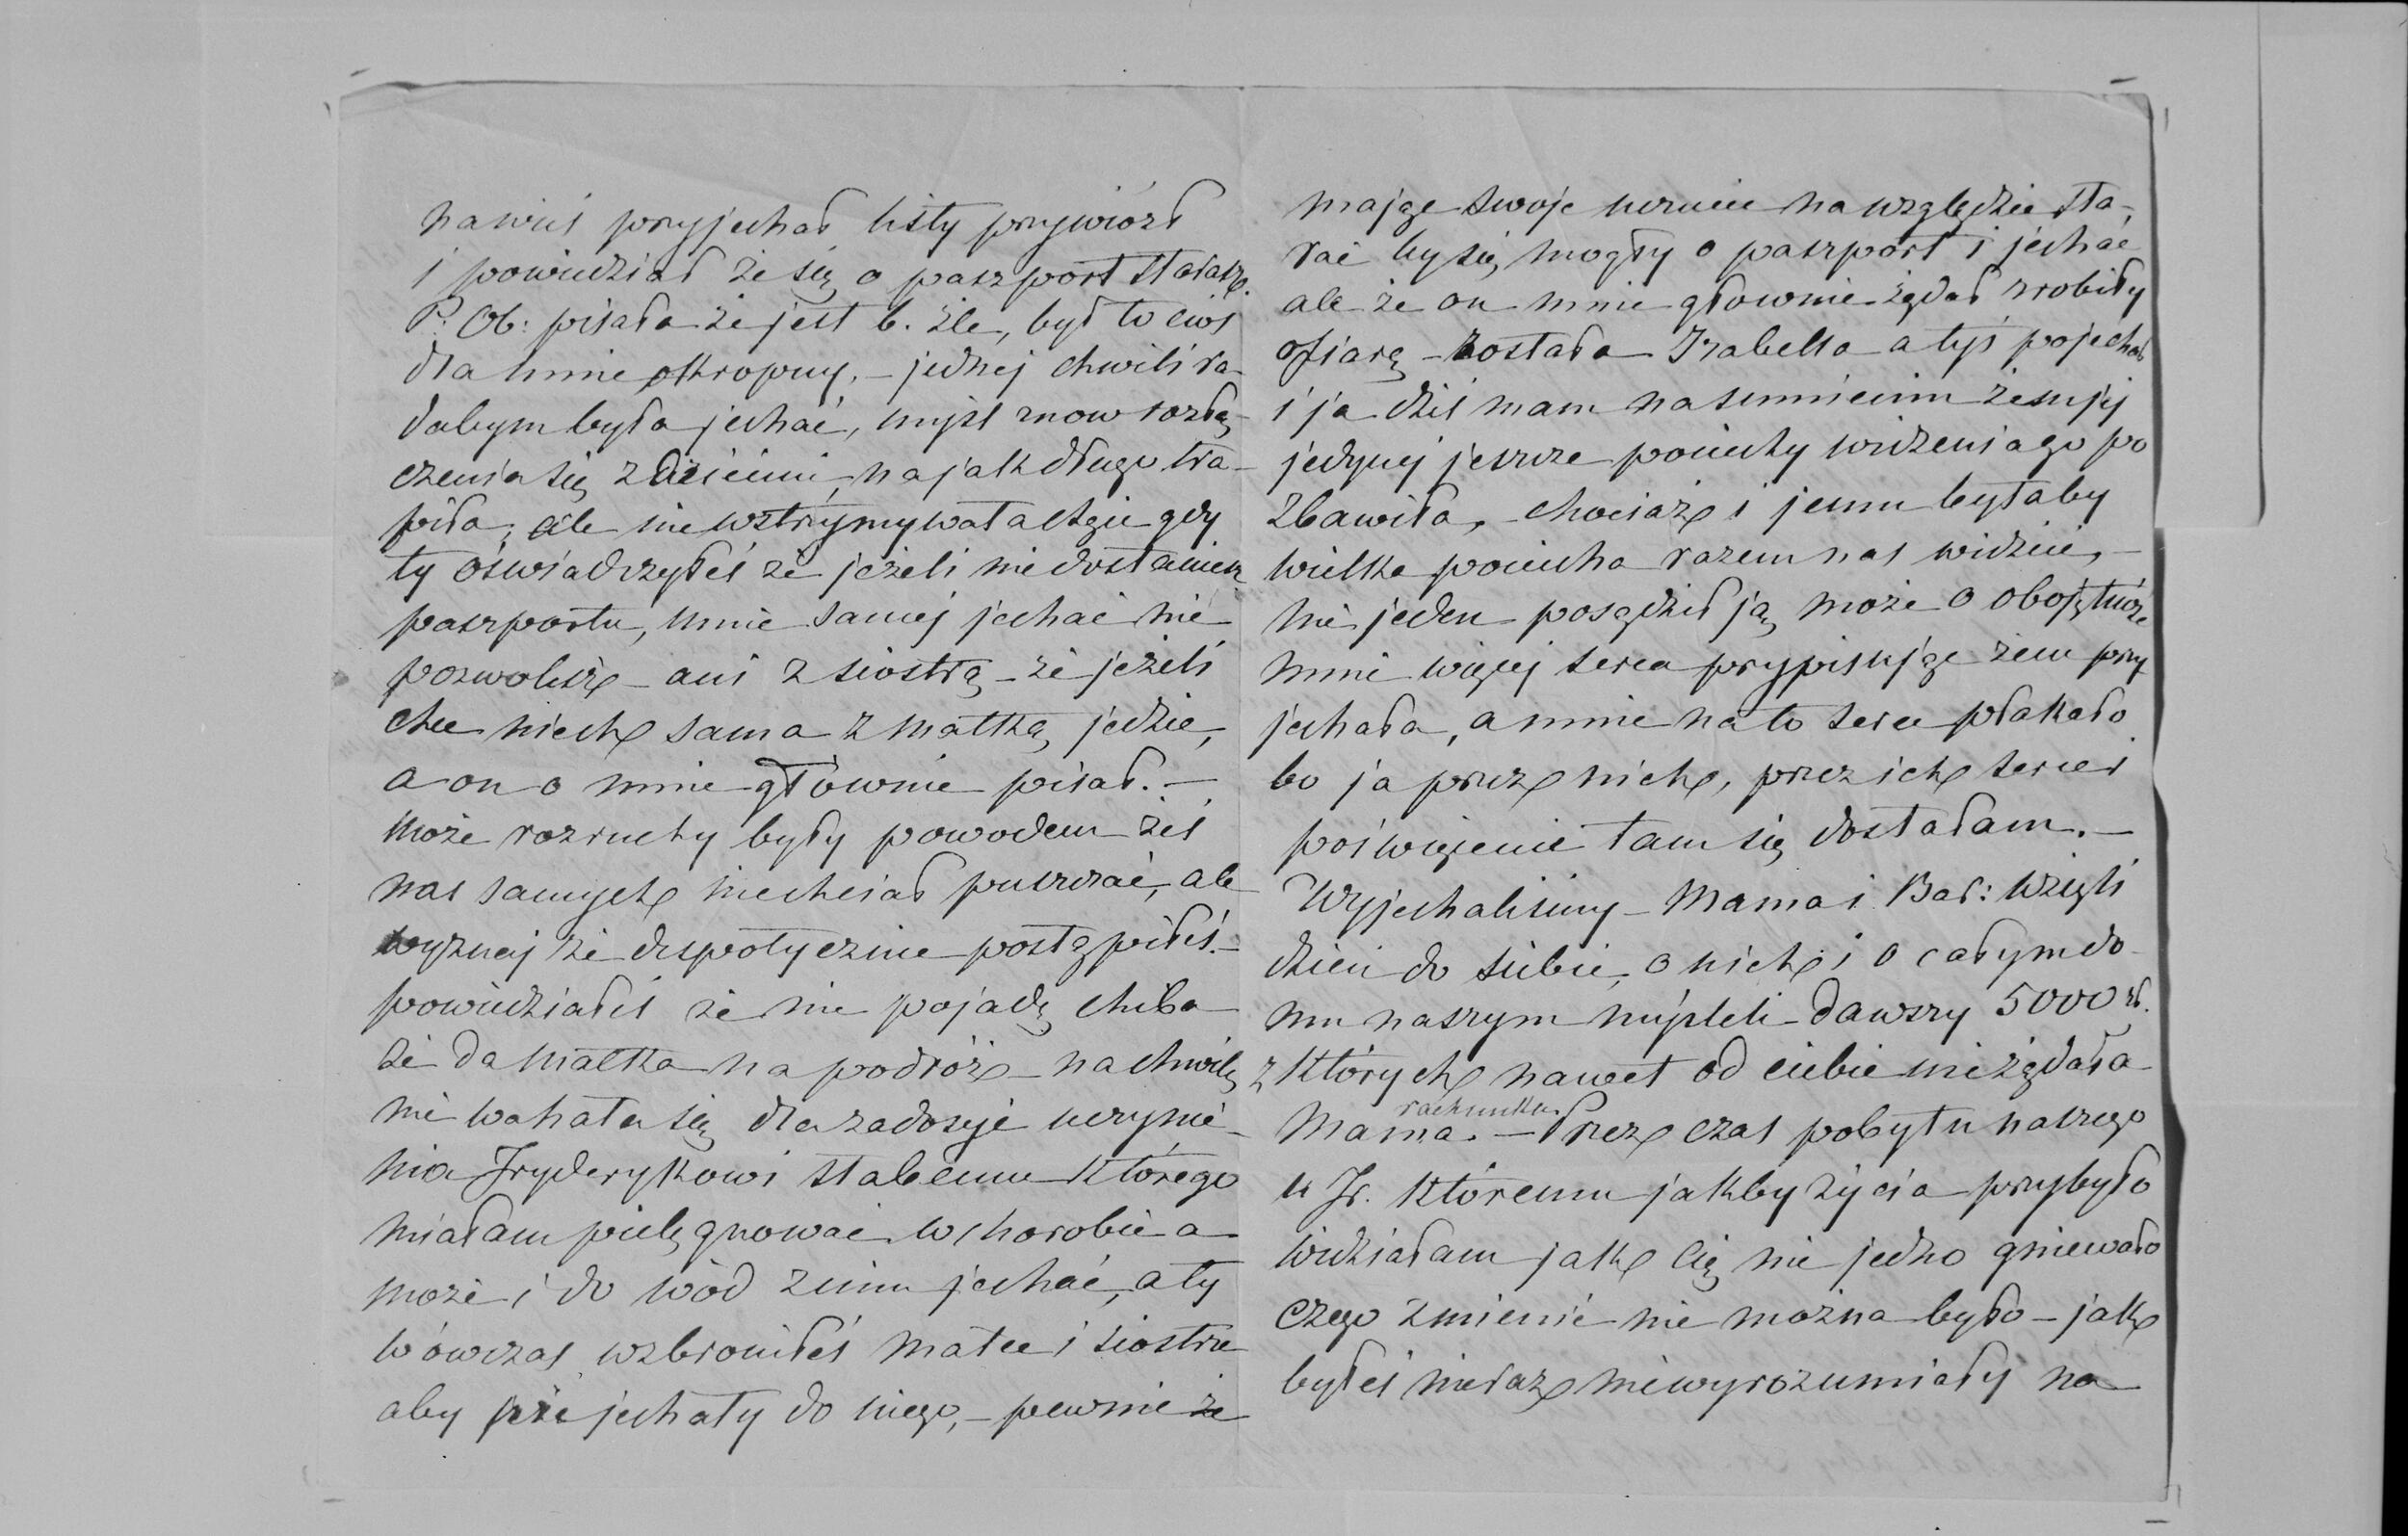 nawieś przyjechał listy przywiózł
i powiedział że się o paszport starasz.
P: Ob: pisała że jest b. źle, był to cios
dla mnie okropny, – jednej chwili ra-
dabym była jechać, myśl znow rozłą-
czenia się z dziećmi, na jak długo tra-
piła, ale nie wstrzymywała chęci gdy
ty oświadczyłeś że jeżeli nie dostaniesz
paszportu, mnie samej jechać nie
pozwolisz – ani z siostrą – że jeżeli
chce niech sama z matką jedzie,
a on o mnie głównie pisał. –
Może rozruchy były powodem żeś
nas samych niechciał puszczać, ale
wyznaj że despotycznie postąpiłeś. –
powiedziałeś że nie pojadę chiba
że da matka na podróż – na chwilę
nie wahała się dla zadosyć uczynie-
nia Fryderykowi słabemu którego
miałam pielęgnować w chorobie a
może i do wód z nim jechać, a ty
wówczas wzbroniłeś matce i siostrze
aby jechały do niego, – pewnie że
mając swoje uczucie na względzie sta-
rać by się mogły o paszport i jechać
ale że on mnie głownie żądał zrobiły
ofiarę – została Izabella a tyś pojechał
i ja dziś mam na sumnieniu żem jej
jedynej jeszcze pociechy widzenia go po
zbawiła, – chociaż i jemu byłaby
wielka pociecha razem nas widzieć, –
nie jeden posądził ją może o obojętność
mnie więcej serca przypisując żem przy
jechała, a mnie na to serce płakało
bo ja przez nich, przez ich serce i
poświęcenie tam się dostałam. –
Wyjechaliśmy – Mama i Bar: wzięli
dzieci do siebie, o nich i o całym do-
mu naszym myśleli – dawszy 5000 zł.
z których nawet od ciebie nie żądała
rachunku
Mama. – Przez czas pobytu naszego
u Fr. któremu jakby życia przybyło
widziałam jak Cię nie jedno gniewało
czego zmienić nie można było – jak
byłeś nieraz niewyrozumiały na